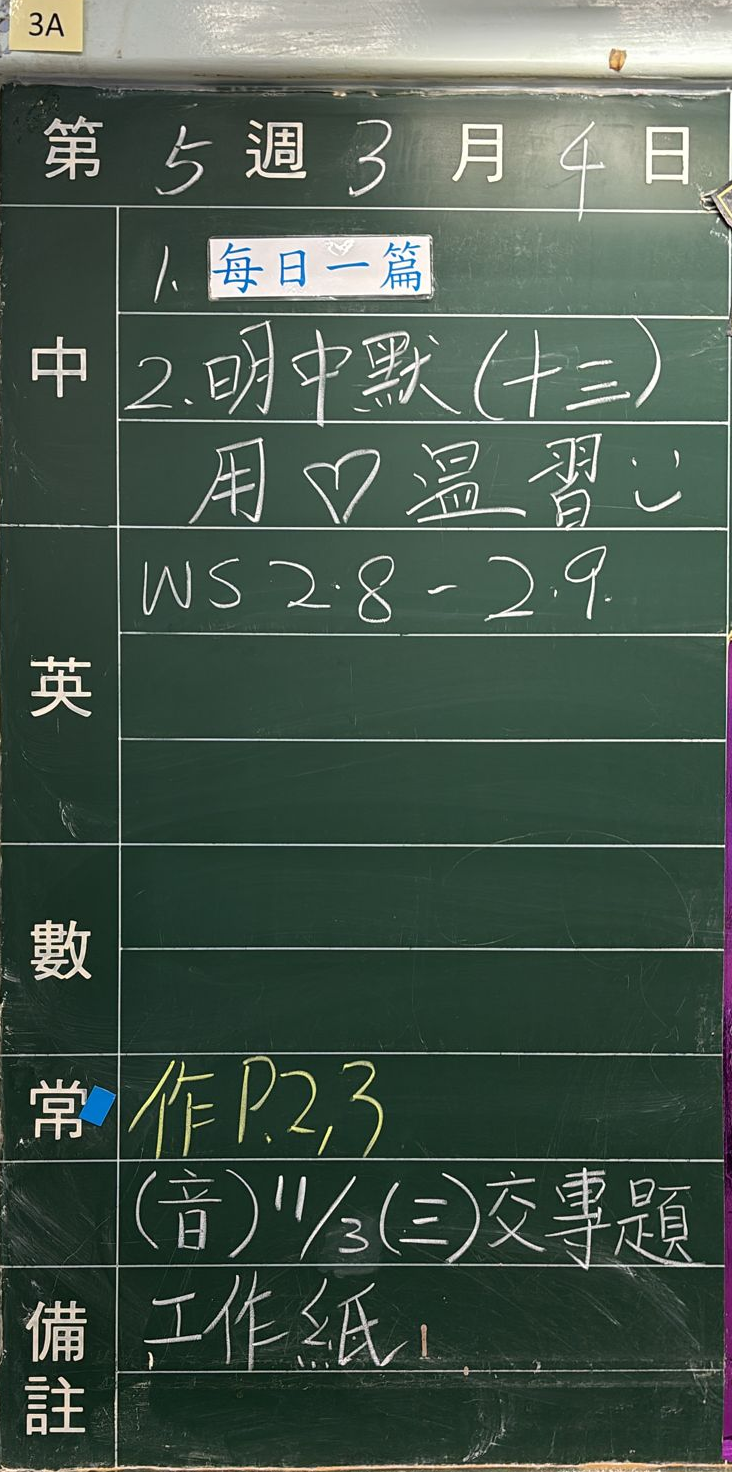 3A
第 5 週 3 月 4 日
中
1. 每日一篇
2. 明中默(十三)
用♡溫習
英
WS 2.8 - 2.9.
數
常
作P.2,3
(音)11/3(三)交專題
備註
工作紙